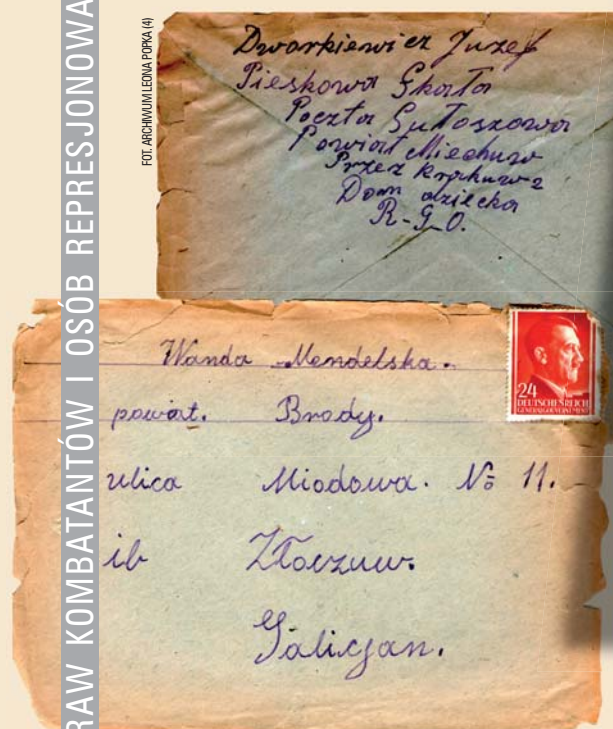 RAW KOMBATANTÓW I OSÓB REPRESJONOWA
FOT. ARCHIWUM LEONA POPKA (4)
Dworkiewicz Juzef
Pieskowa Skała
Poczta Sułoszowa
Powiat Miechuw
Przez Krakuw 2
Dom dziecka
R-G-O.
Wanda Mendelska.
powiat. Brody.
ulica Miodowa. № 11.
ib Złoczuw.
Galicjan.
24
DEUTSCHES REICH
GENERALGOUVERNEMENT